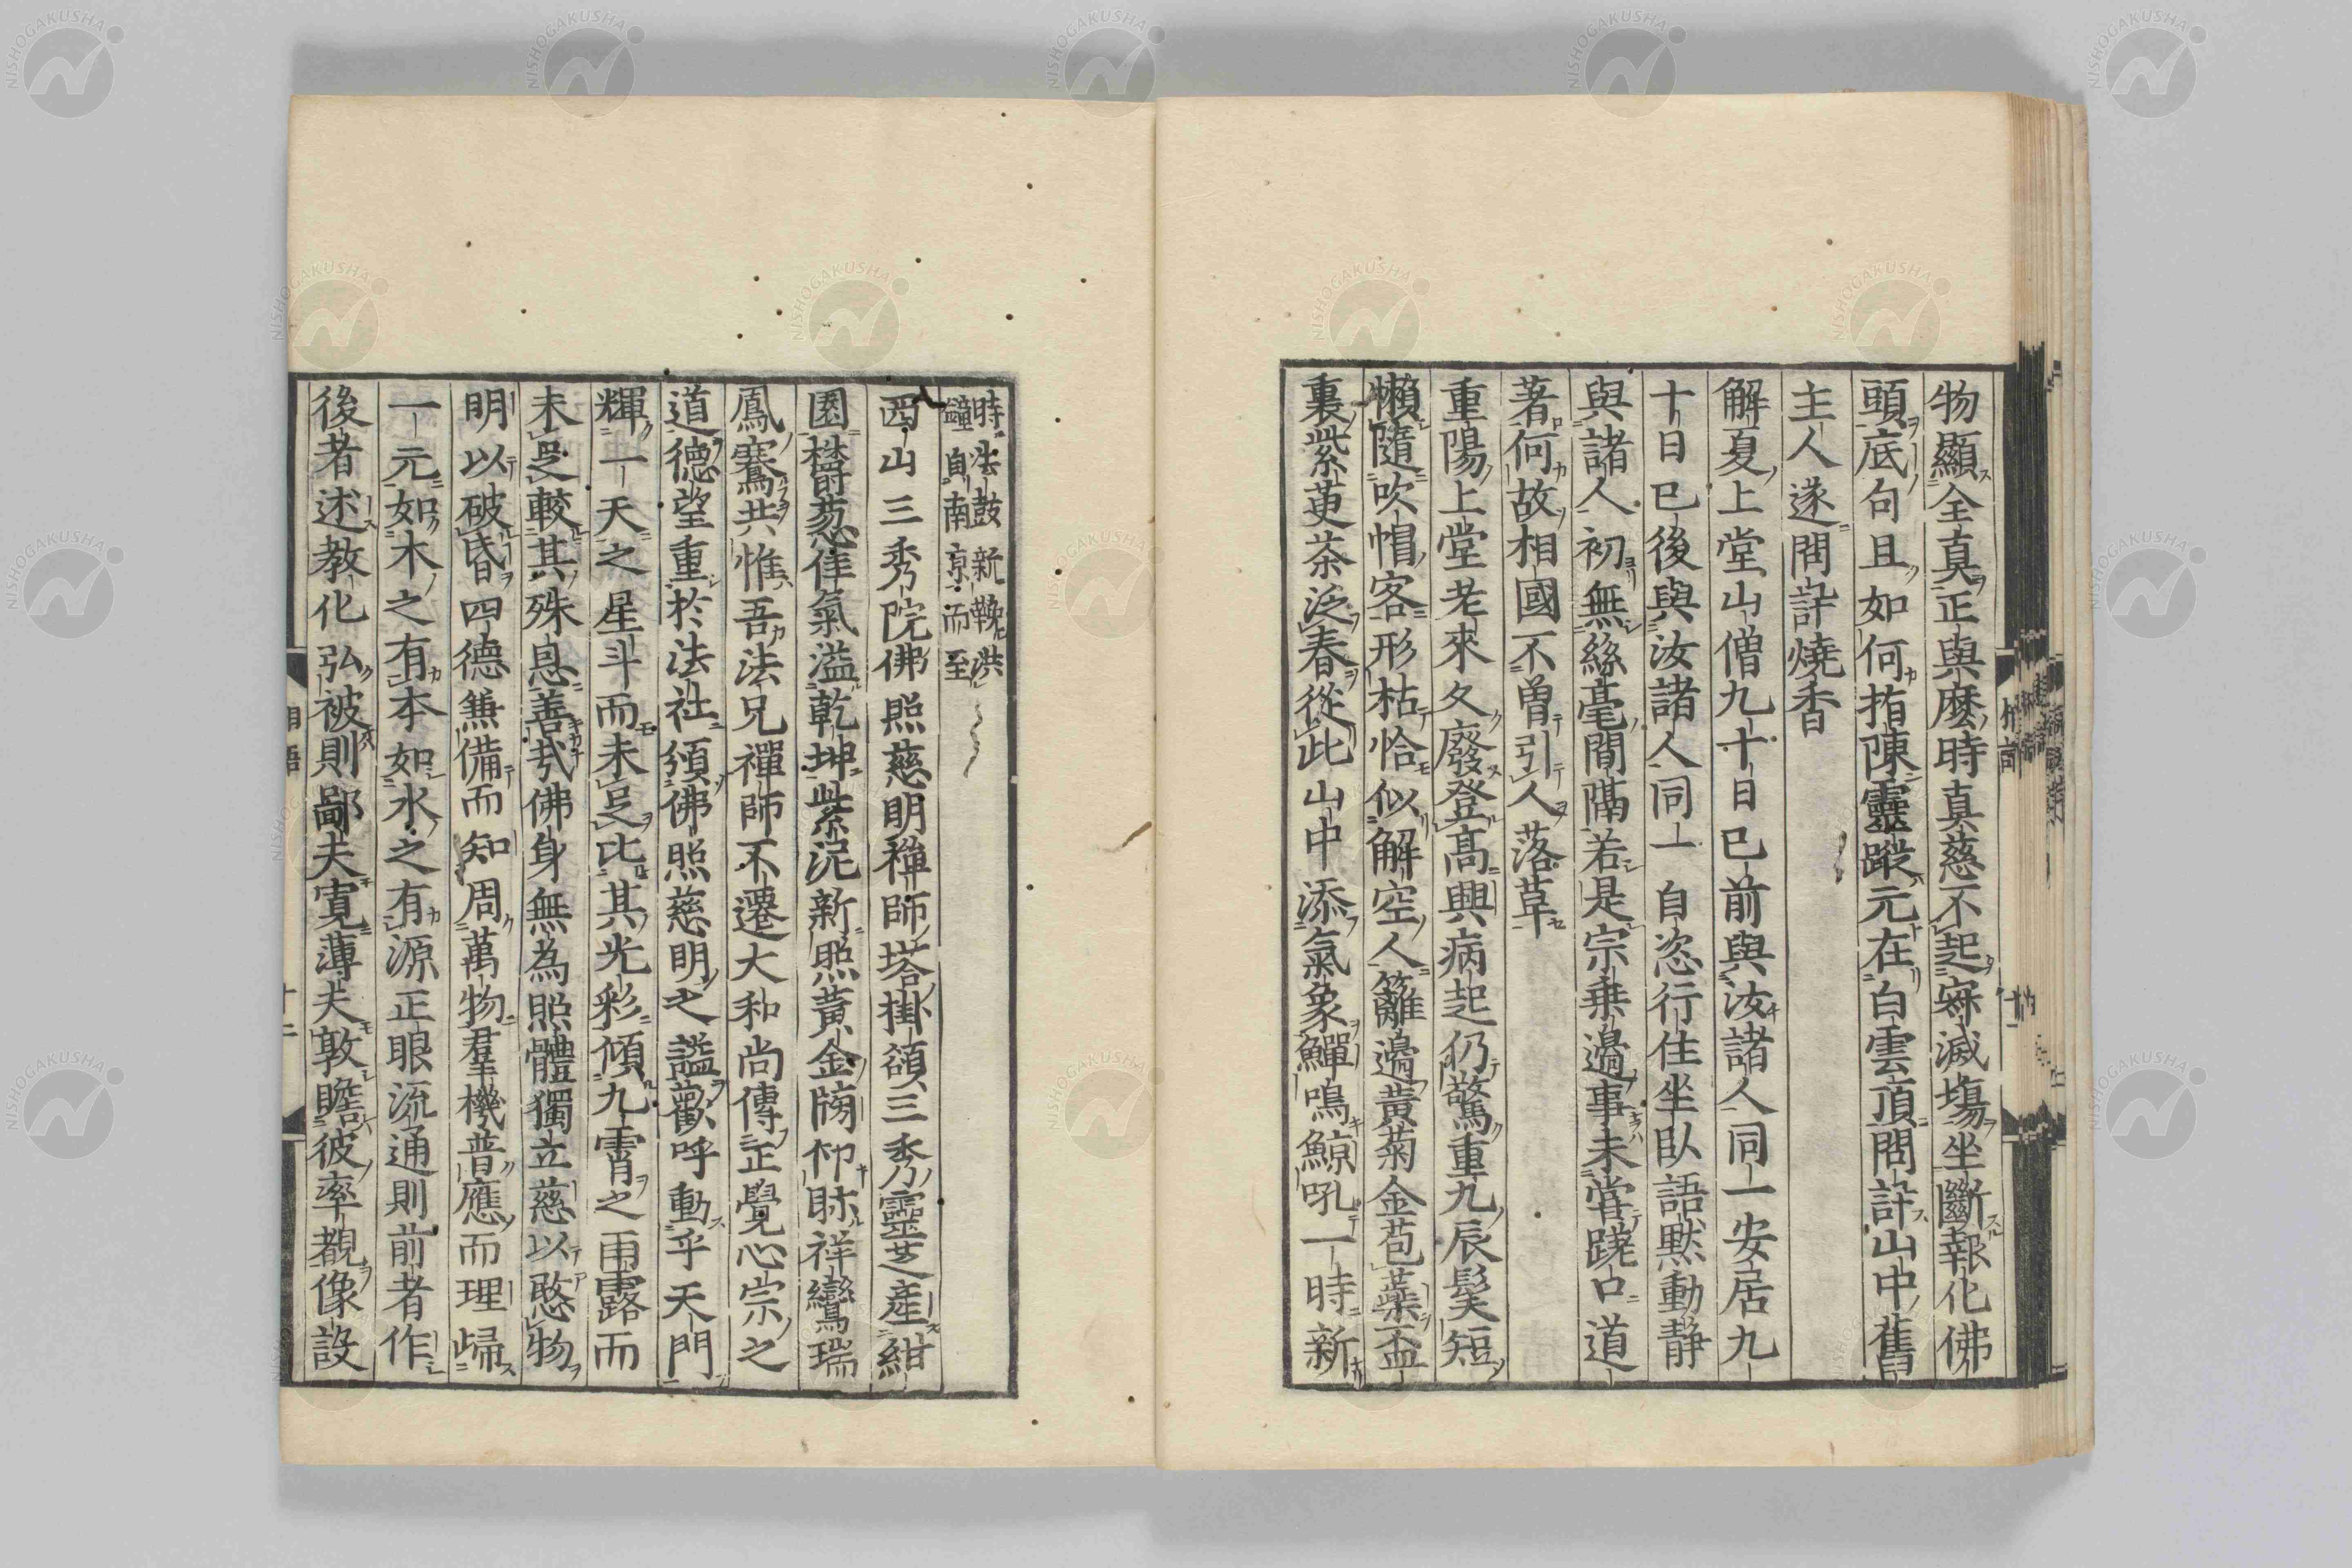 物顯全真正與麼時真慈不起寂滅場坐斷報化佛
頭底句且如何指陳靈蹤元在白雲頂問訐山中舊
主人遂問訐燒香
解夏上堂山僧九十日已前與汝諸人同一安居九
十日已後與汝諸人同一自恣行住坐臥語默動静
與諸人初無絲毫間隔若是宗乘邊事未甞蹺口道
著何故相國不曽引人落草
重陽上堂老來久廢登高興病起仍驚重九辰髮短
懶隨吹帽客形枯恰似解空人籬邊黃菊金苞蘂盃
裏紫茰茶泛春從此山中添氣象鱓鳴鯨吼一時新
時法鼓新鞔洪
鐘自南京而至
西山三秀院佛照慈明禅師塔掛額三秀靈芝產紺
園欎葱佳氣溢乾坤紫泥新照黃金牓仰眎祥鸞瑞
鳳騫共惟吾法兄禪師不遷大和尚傳正覺心宗之
道德望重於法社頒佛照慈明之謚歡呼動乎天門
輝一天之星斗而未足比其光彩傾九霄之雨露而
未足較其殊恩善㢤佛身無為照體獨立慈以愍物
明以破昏四德無備而知周萬物羣機普應而理歸
一元如木之有本如水之有源正眼流通則前者作
後者述教化弘被則鄙夫寬薄夫敦瞻彼率覩像設
NISHOGAKUSHA